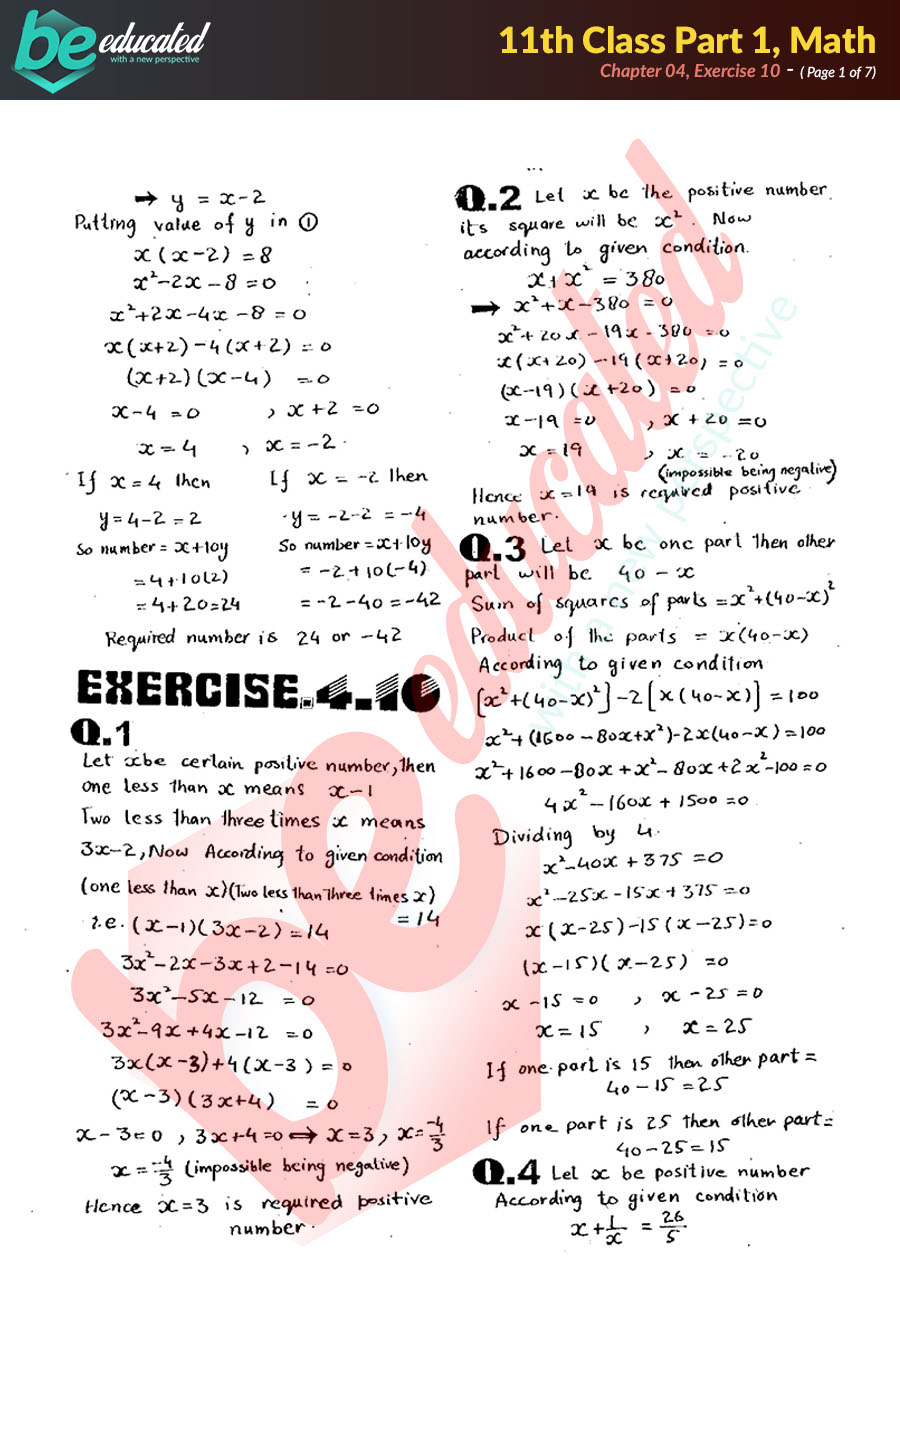 be educated
with a new perspective
11th Class Part 1, Math
Chapter 04, Exercise 10 - ( Page 1 of 7)
→ y = x-2
Putting value of y in ①
x(x-2) = 8
x²-2x-8=0
x²+2x-4x-8=0
x(x+2)-4(x+2)=0
(x+2)(x-4) =0
x-4=0 , x+2=0
x=4 , x=-2
If x=4 then If x=-2 then
y=4-2=2 y=-2-2=-4
So number=x+10y So number=x+10y
=4+10(2) =-2+10(-4)
=4+20=24 =-2-40=-42
Required number is 24 or -42
EXERCISE.4.10
Q.1
Let x be certain positive number, then
one less than x means x-1
Two less than three times x means
3x-2, Now According to given condition
(one less than x)(Two less than three times x)
=14
i.e. (x-1)(3x-2)=14
3x²-2x-3x+2-14=0
3x²-5x-12 =0
3x²-9x+4x-12 =0
3x(x-3)+4(x-3)=0
(x-3)(3x+4) =0
x-3=0, 3x+4=0 ⟺ x=3, x=-4/3
x=-4/3 (impossible being negative)
Hence x=3 is required positive
number.
Q.2 Let x be the positive number
its square will be x². Now
according to given condition.
x+x² = 380
→ x²+x-380=0
x²+20x-19x-380=0
x(x+20)-19(x+20)=0
(x-19)(x+20)=0
x-19=0 , x+20=0
x=19 , x=-20
(impossible being negative)
Hence x=19 is required positive
number.
Q.3 Let x be one part then other
part will be 40-x
Sum of squares of parts=x²+(40-x)²
Product of the parts = x(40-x)
According to given condition
[x²+(40-x)²]-2[x(40-x)]=100
x²+(1600-80x+x²)-2x(40-x)=100
x²+1600-80x+x²-80x+2x²-100=0
4x²-160x+1500=0
Dividing by 4.
x²-40x+375=0
x²-25x-15x+375=0
x(x-25)-15(x-25)=0
(x-15)(x-25) =0
x-15=0 , x-25=0
x=15 , x=25
If one part is 15 then other part=
40-15=25
If one part is 25 then other part=
40-25=15
Q.4 Let x be positive number
According to given condition
x+1/x = 26/5
be educated
with a new perspective